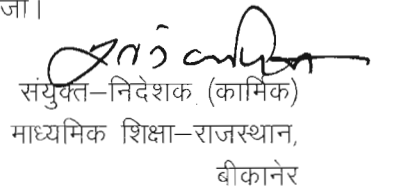 जा।
संयुक्त–निदेशक (कार्मिक)
माध्यमिक शिक्षा–राजस्थान,
बीकानेर